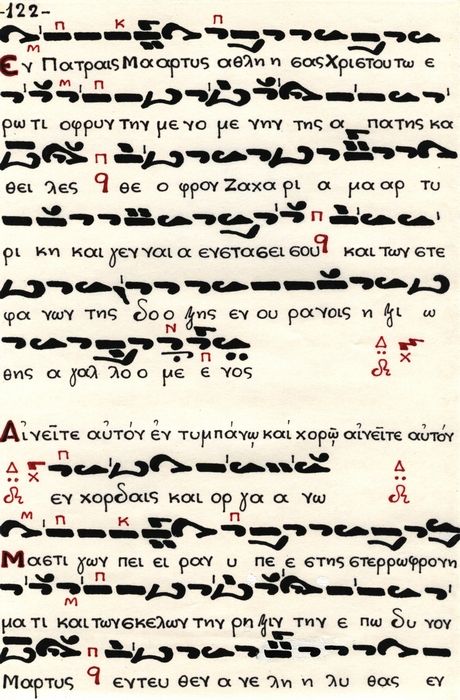 -122-
Εν Πατραις Μα αρτυς αθλη η σας Χριστου τω ε
ρω τι οφρυν την με νο με νην της α πατης κα
θει λες θε ο φρον Ζαχα ρι α μα αρ τυ
ρι κη και γεν ναι α ενστασει σου και των στε
φα νων της δο ο ξης εν ου ρανοις η ξι ω
θης α γαλ λο ο με ε νος
Αἰνεῖτε αὐτόν ἐν τυμπάνῳ καί χορῷ αἰνεῖτε αὐτόν
εν χορδαις και ορ γα α νω
Μαστι γων πει ει ραν υ πε ε στης στερροφρονη
μα τι και των σκελων την ρη ξιν την ε πω δυ νον
Μαρτυς εντευ θεν α νε λη η λυ θας εν